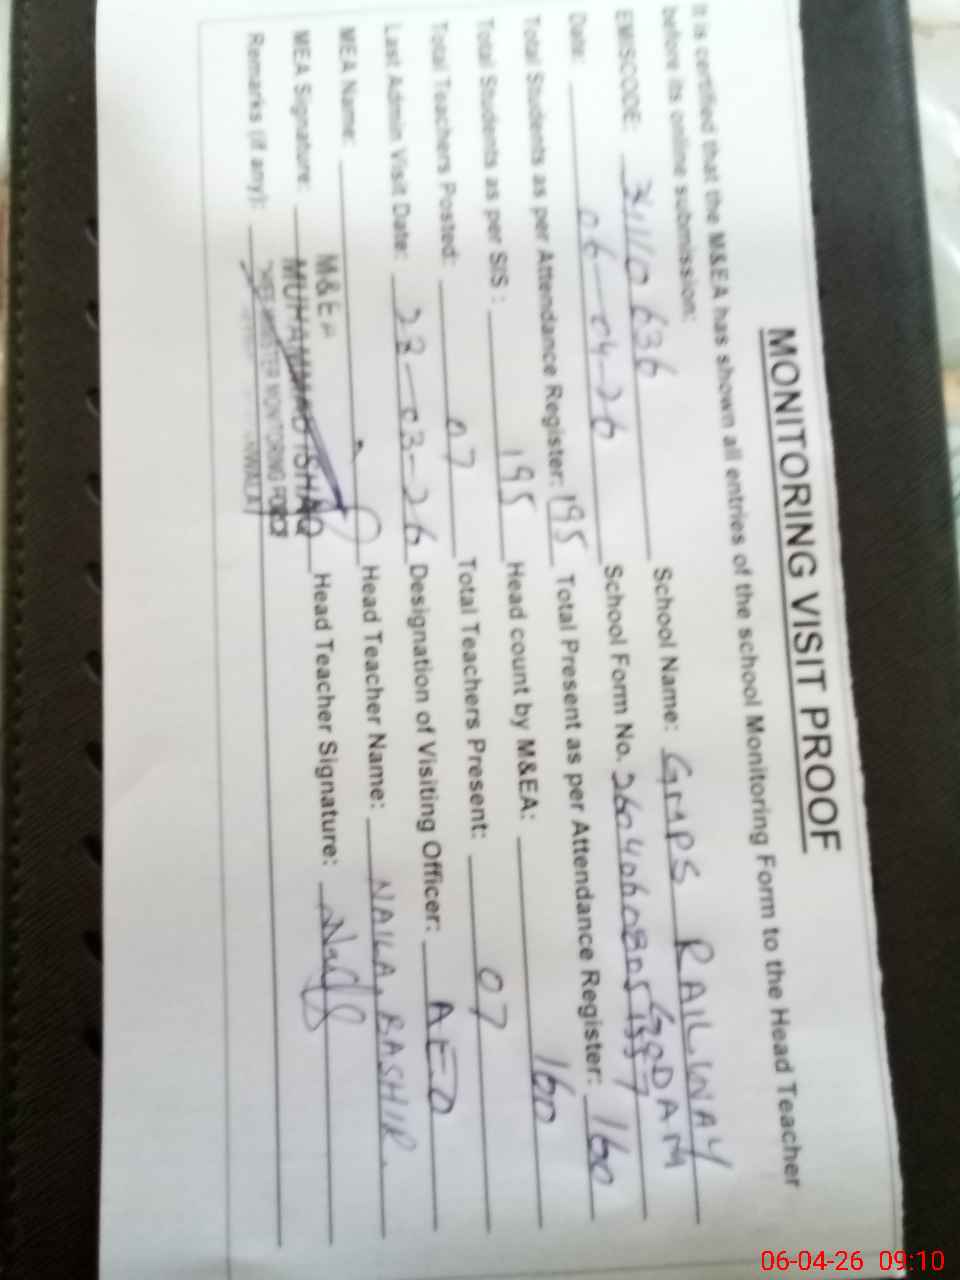 MONITORING VISIT PROOF
It is certified that the M&EA has shown all entries of the school Monitoring Form to the Head Teacher
before its online submission:
EMISCODE: 31110636 School Name: GMPS RAILWAY
GODAM
Date: 06-04-26 School Form No.
Total Students as per Attendance Register: 195 Total Present as per Attendance Register: 160
Total Students as per SIS: 195 Head count by M&EA: 160
Total Teachers Posted: 07 Total Teachers Present: 07
Last Admin Visit Date: 28-03-26 Designation of Visiting Officer: AEO
MEA Name: Head Teacher Name: NAILA BASHIR.
MEA Signature: Head Teacher Signature:
M&EA
MUHAMMAD ISHAQ
MONITORING FORCE
Remarks (if any):
06-04-26 09:10